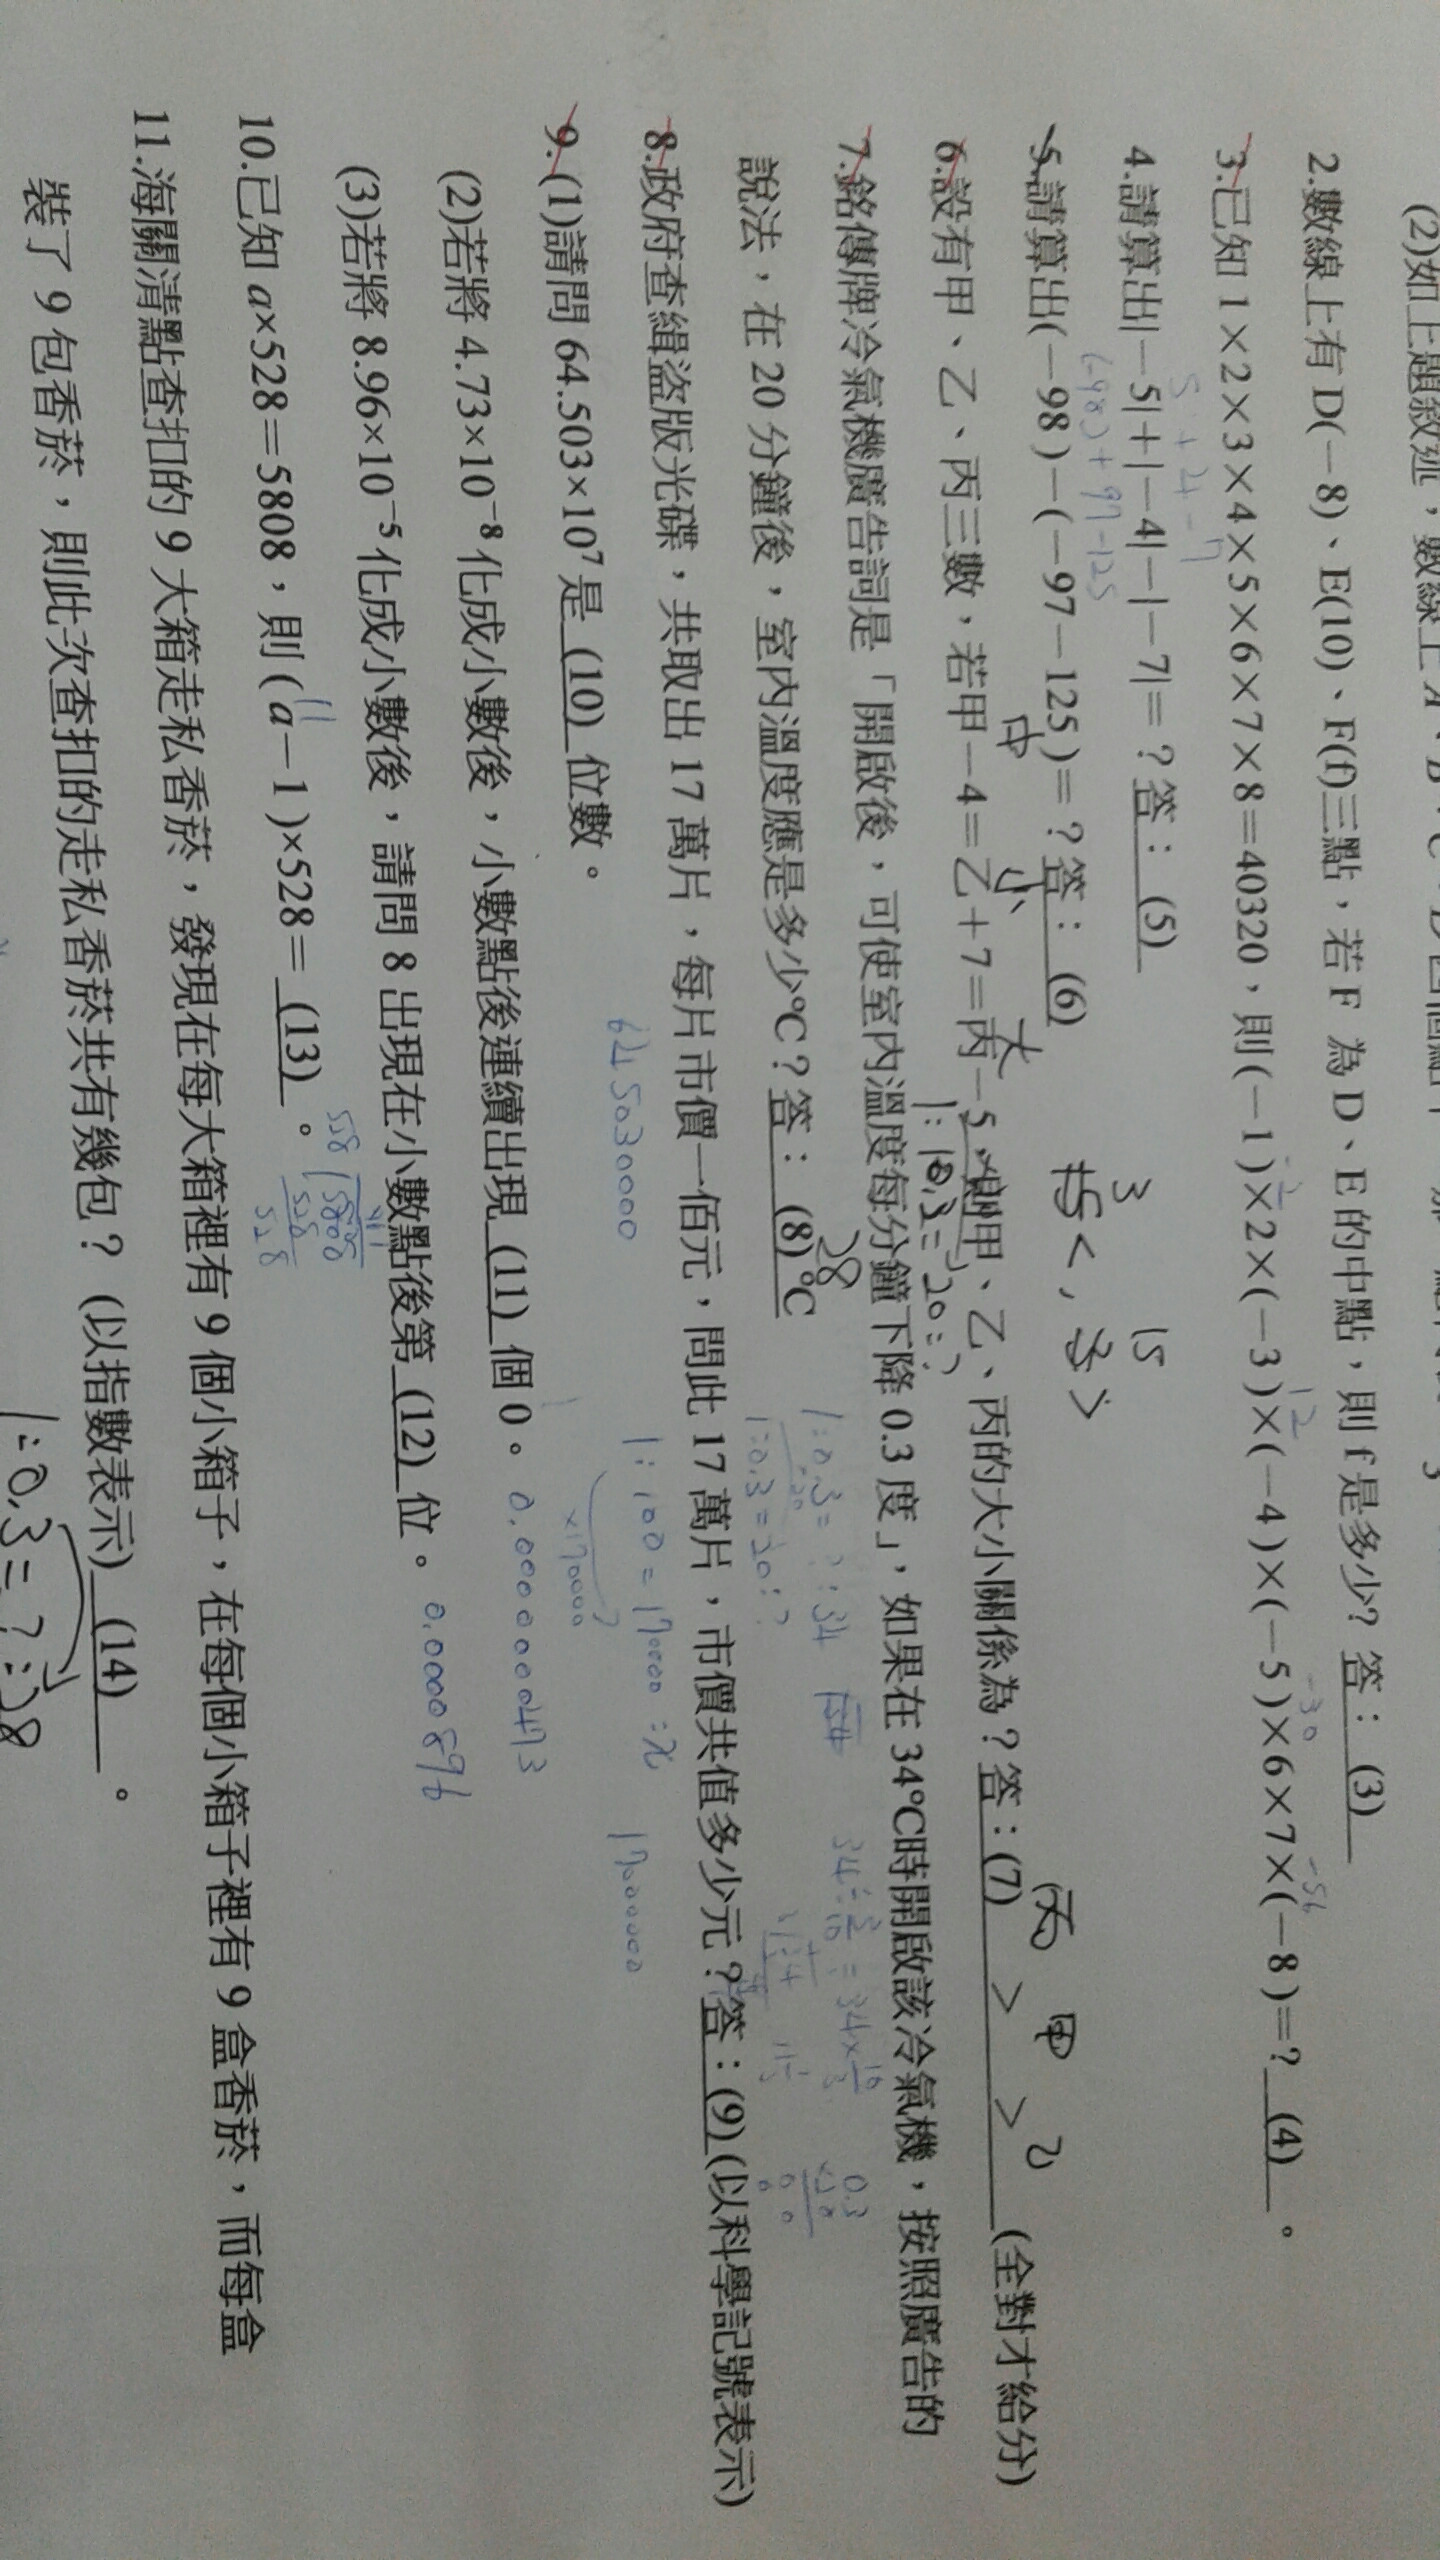 (2)如上題敘述，數線上A、B、C、D四個點中
2.數線上有D(－8)、E(10)、F(f)三點，若F 為D、E的中點，則f是多少？答：(3)
3.已知1×2×3×4×5×6×7×8＝40320，則(－1)×2×(－3)×(－4)×(－5)×6×7×(－8)=？(4)。
12 -30 -56
4.請算出|－5|＋|－4|－|－7|＝？答：(5)
5+4-7
5.請算出(－98)－(－97－125)＝？答：(6)
(-98)+97-125
6.設有甲、乙、丙三數，若甲－4＝乙＋7＝丙－5，則甲、乙、丙的大小關係為？答：(7) ＞ ＞ (全對才給分)
中 小 大
丙 甲 乙
7.銘傳牌冷氣機廣告詞是「開啟後，可使室內溫度每分鐘下降0.3度」，如果在34℃時開啟該冷氣機，按照廣告的
說法，在20分鐘後，室內溫度應是多少℃？答：(8)℃
28
1:0.3=?:34
1:0.3=20:?
8.政府查緝盜版光碟，共取出17萬片，每片市價一佰元，問此17萬片，市價共值多少元？答：(9)(以科學記號表示)
1:100=170000:x
×170000
1700000
9.(1)請問64.503×10⁷是(10)位數。
645030000
(2)若將4.73×10⁻⁸化成小數後，小數點後連續出現(11)個0。
0.0000000473
(3)若將8.96×10⁻⁵化成小數後，請問8出現在小數點後第(12)位。
0.0000896
10.已知a×528＝5808，則(a－1)×528＝(13)。
11
11.海關清點查扣的9大箱走私香菸，發現在每大箱裡有9個小箱子，在每個小箱子裡有9盒香菸，而每盒
裝了9包香菸，則此次查扣的走私香菸共有幾包？(以指數表示)(14)。
1:0.3=?:28